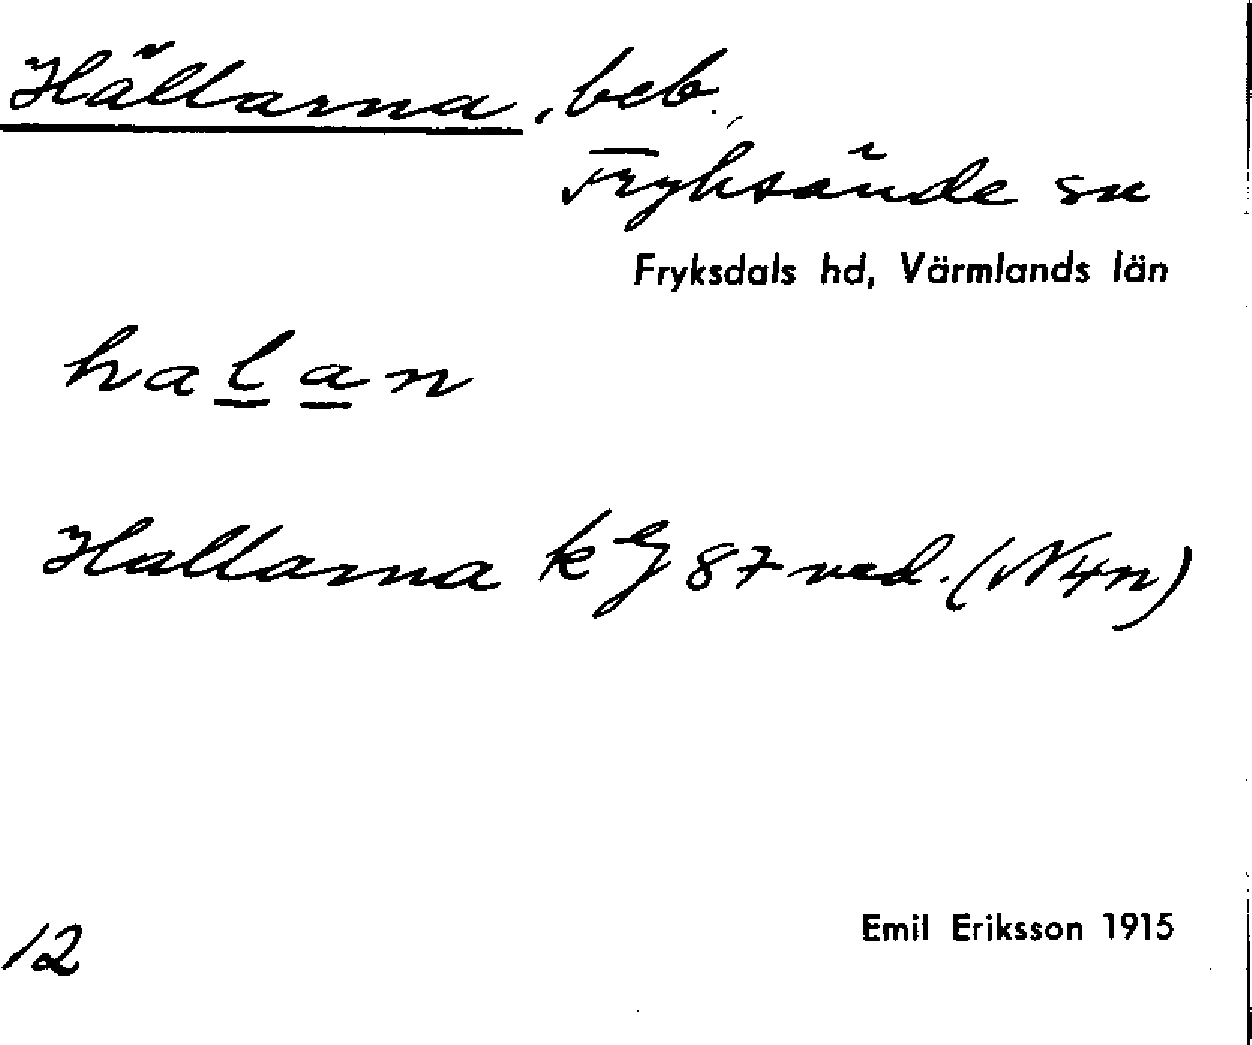 Hällarna, beb.,
Fryksände sn
Fryksdals hd, Värmlands län
halan
Hallarna k 87 ved. (N4n)
Emil Eriksson 1915
12